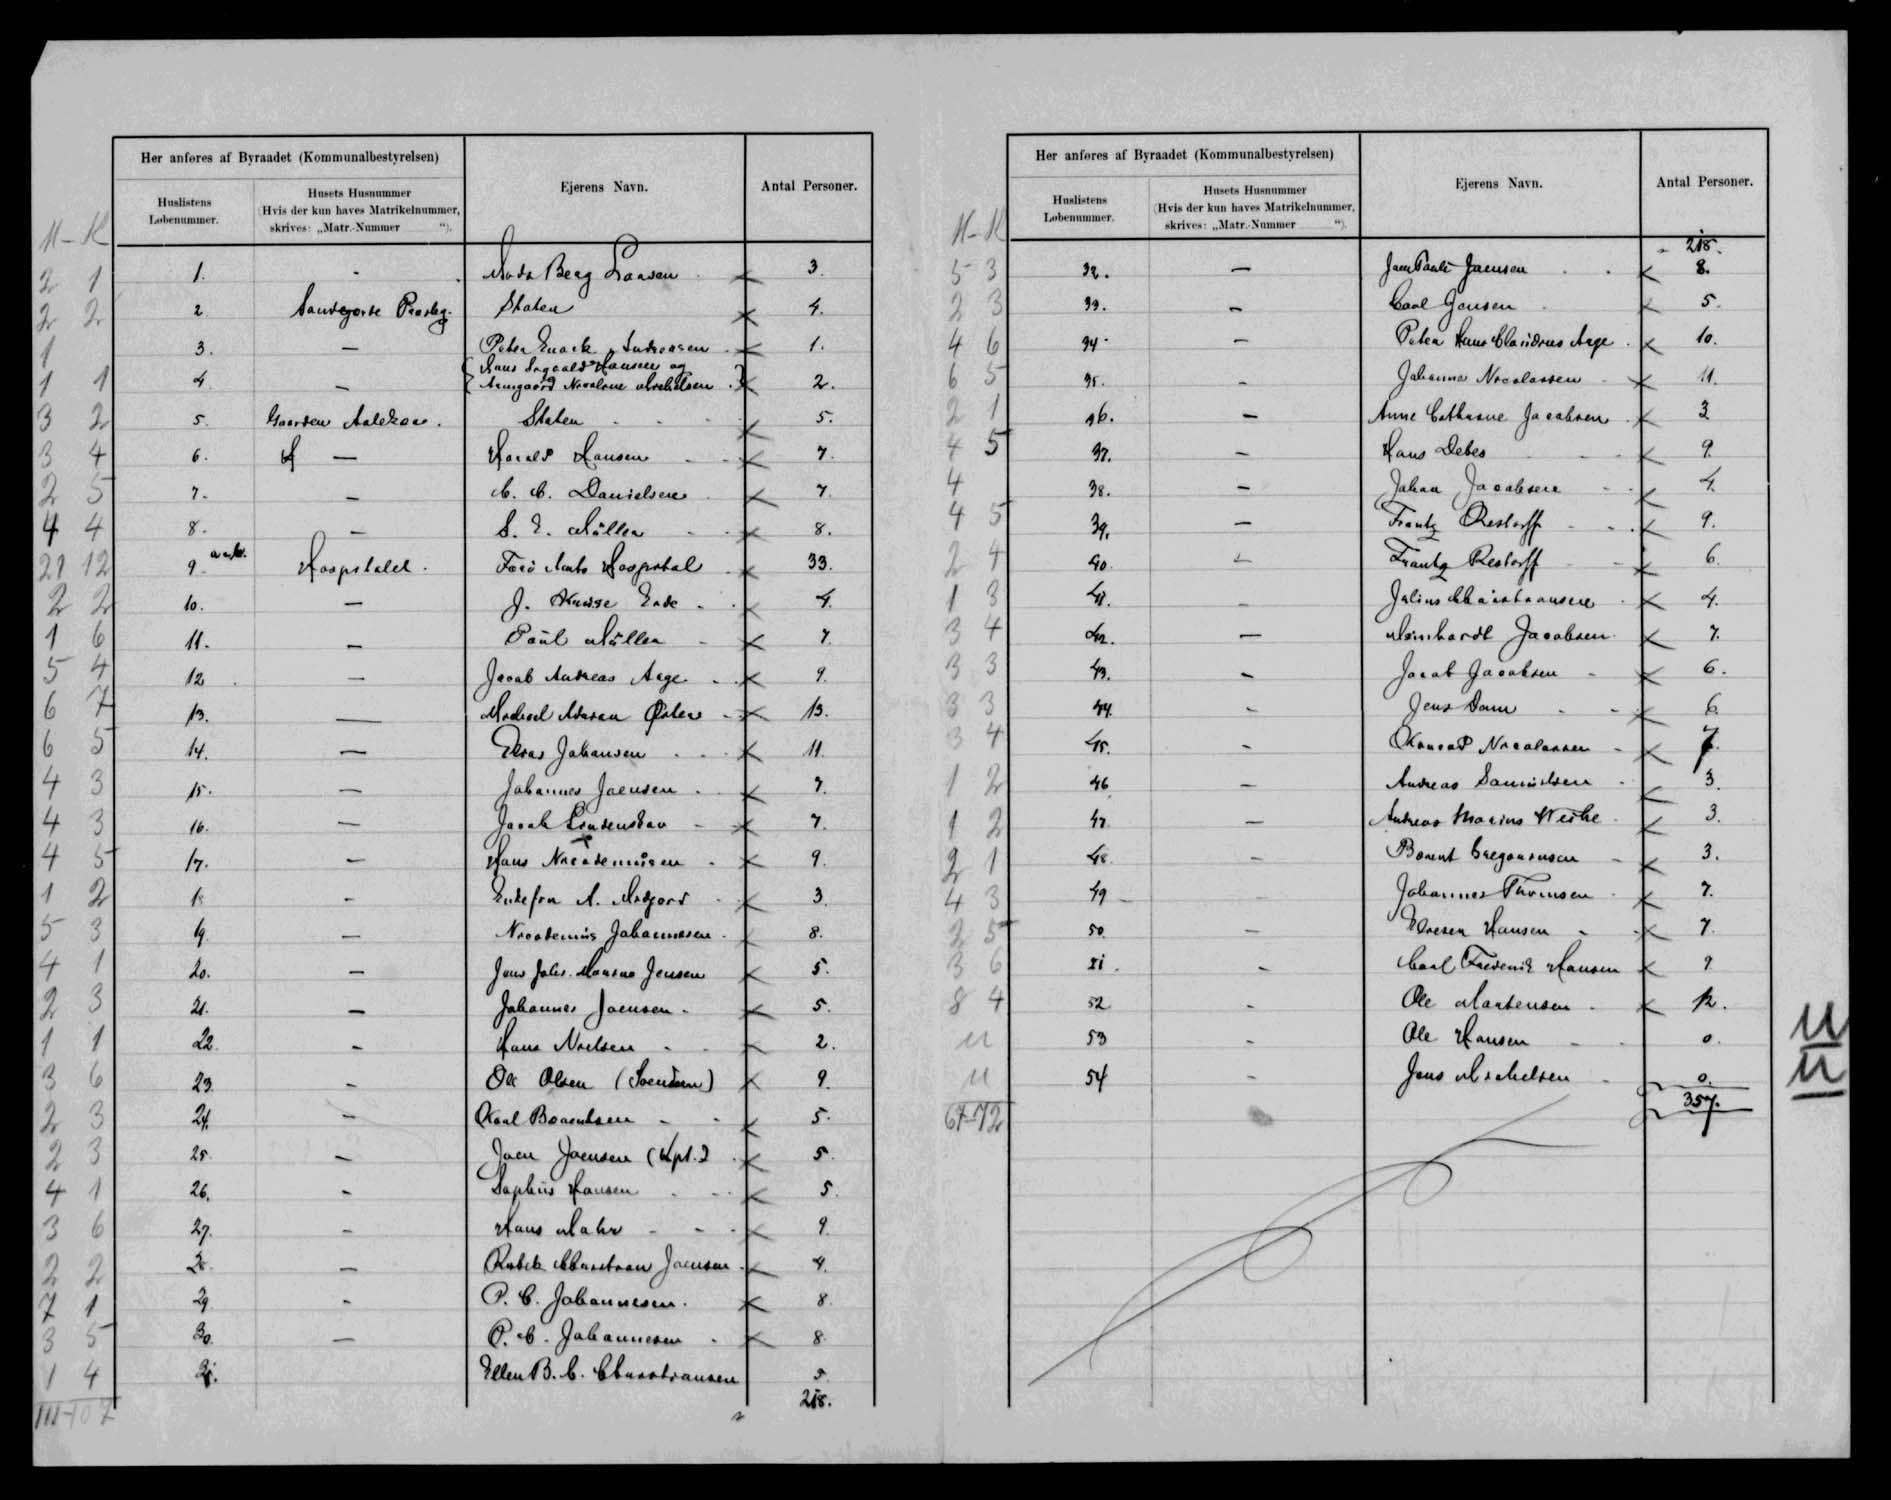 Her anføres af Byraadet (Kommunalbestyrelsen)
Huslistens Løbenummer.
Husets Husnummer (Hvis der kun haves Matrikelnummer, skrives: „Matr.-Nummer “).
Ejerens Navn.
Antal Personer.
M - K
2 1 1. - Mads Berg Larsen 3.
2 2 2 Sandegerde Præsteg. Staten 4.
1 3. — Peter Enock Andreasen 1.
1 1 4. — { Hans Ingvald Hansen og
Armgaard Nicoline Michelsen } 2.
3 2 5. Gaarden Aalekær. Staten 5.
3 4 6. — Harald Hansen 7.
2 5 7. — C. C. Danielsen 7.
4 4 8. — S. E. Müller 8.
21 12 9 Hospitalet. Færø Amts Hospital 33.
2 2 10. — J. Enke 4.
1 6 11. — Paul Müller 7.
5 4 12 — Jacob Andreas Aage 9.
6 7 13. — Michael Adrian Øster 13.
6 5 14. — Elias Johansen 11.
4 3 15. — Johannes Joensen 7.
4 3 16. — Jacob Lindenskov 7.
4 5 17. — Hans Nicodemusen 9.
1 2 18 - Enkefru A. Midjord 3.
5 3 19. — Nicodemus Johannesen 8.
4 1 20. — Jens Johs. Marius Jensen 5.
2 3 21. — Johannes Joensen 5.
1 1 22. - Hans Nielsen 2.
3 6 23. - Ole Olsen 9.
2 3 24. — Karl Berentsen 5.
2 3 25. — Joen Joensen (Kpt.) 5.
4 1 26. - Sophus Hansen 5.
3 6 27. - Hans Mohr 9.
2 2 28. — Christian Joensen 4.
7 1 29 - P. C. Johannesen. 8.
3 5 30. — P. C. Johannesen 8.
1 4 31. Ellen B. C. Christiansen 5
111-107 218.
Her anføres af Byraadet (Kommunalbestyrelsen)
Huslistens Løbenummer.
Husets Husnummer (Hvis der kun haves Matrikelnummer, skrives: „Matr.-Nummer “).
Ejerens Navn.
Antal Personer.
M - K
218.
5 3 32. — Joen Pauli Joensen 8.
2 3 33. — Carl Jensen 5.
4 6 34. — Peter Hans Claudrus Aage 10.
6 5 35. - Johanna Nicolassen 11.
2 1 36. — Anne Cathrine Jacobsen 3
4 5 37. — Hans Debes 9.
4 38. — Johan Jacobsen 4.
4 5 39. — Frantz Restorff 9.
2 4 40. — Frantz Restorff 6.
1 3 41. - Julius Christiansen 4.
3 4 42. — Meinhardt Jacobsen 7.
3 3 43. - Jacob Jacobsen 6.
3 3 44. - Jens Dam 6.
3 4 45. - Konrad Nicolassen 7
1 2 46 — Andreas Samuelsen 3.
1 2 47. — Andreas Marius Weihe 3.
2 1 48. - Berent Gregoriusen 3.
4 3 49 - Johannes Thomsen 7.
2 5 50. — Hansen 7.
3 6 51. - Carl Frederik Hansen 9
8 4 52 - Ole Mortensen 12.
u 53 - Ole Hansen 0.
u 54 - Jens Michelsen 0.
67-72 357.
U
U